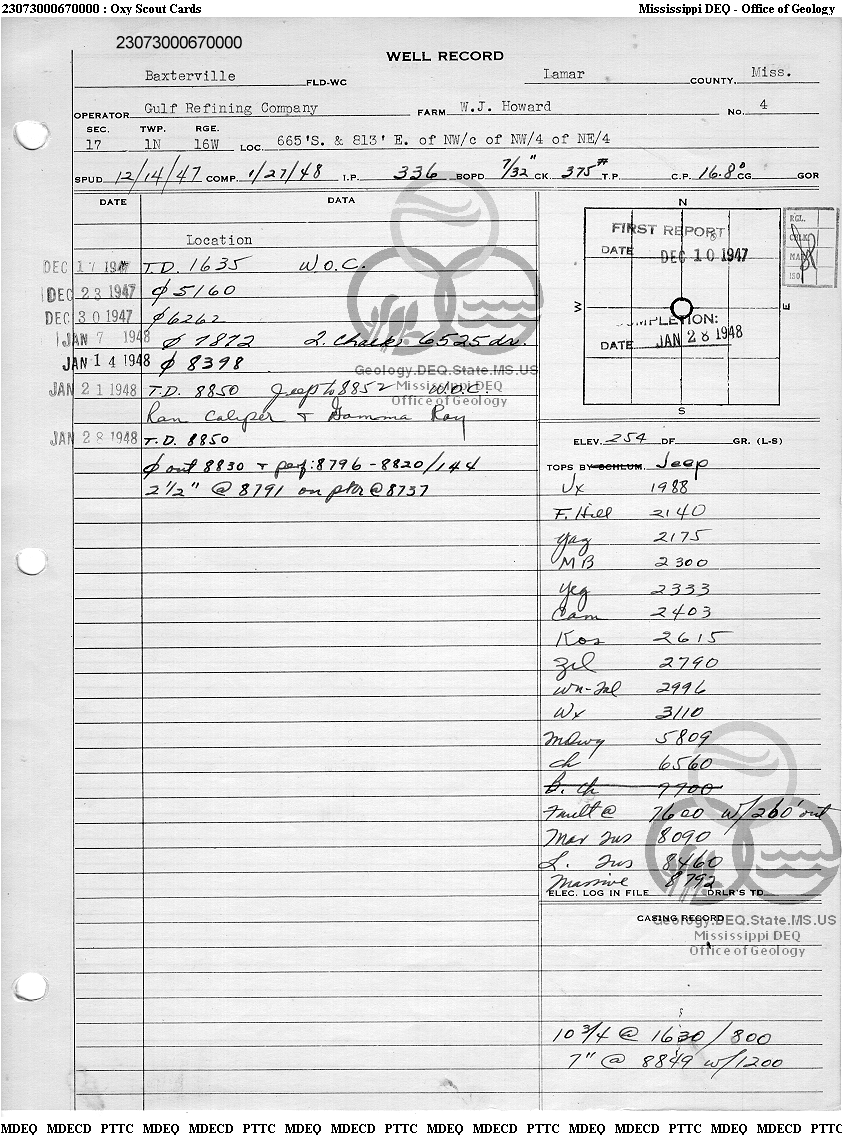 23073000670000 : Oxy Scout Cards Mississippi DEQ - Office of Geology
23073000670000
WELL RECORD
Baxterville FLD-WC Lamar COUNTY, Miss.
OPERATOR Gulf Refining Company FARM W.J. Howard No. 4
SEC. TWP. RGE.
17 1N 16W LOC. 665'S. & 813' E. of NW/c of NW/4 of NE/4
SPUD 12/14/47 COMP. 1/27/48 I.P. 336 BOPD 7/32" CK. 375# T.P. C.P. 16.8° CG GOR
DATE DATA
Location
DEC 17 194 T.D. 1635 W.O.C.
DEC 23 1947 Ø 5160
DEC 30 1947 Ø 6262
JAN 7 1948 Ø 7872 6525 dr.
JAN 14 1948 Ø 8398
JAN 21 1948 T.D. 8850 Jeep to 8852 W.O.C.
Ran Caliper + Gamma Ray
JAN 28 1948 T.D. 8850
Ø out 8830 + perf: 8796-8820/144
2 1/2" @ 8791 on pkr @ 8737
N
W
E
S
FIRST REPORT
DATE DEC 10 1947
COMPLETION:
DATE JAN 28 1948
RGL.
MAP
ISO.
Geology.DEQ.State.MS.US
Mississippi DEQ
Office of Geology
ELEV. 254 DF GR. (L-S)
TOPS BY SCHLUM. Jeep
Vx 1988
F. Hill 2140
Yaz 2175
MB 2300
Yeg 2333
Cam 2403
Kos 2615
Zil 2790
Wn-Tal 2996
Wx 3110
Mdwy 5809
Ch 6560
B. Ch 7700
Fault @ 7600 w/260' out
Mar Tus 8090
L. Tus 8460
Massive 8792
ELEC. LOG IN FILE DRLR'S TD
CASING RECORD
Geology.DEQ.State.MS.US
Mississippi DEQ
Office of Geology
10 3/4 @ 1630/800
7" @ 8849 w/1200
MDEQ MDECD PTTC MDEQ MDECD PTTC MDEQ MDECD PTTC MDEQ MDECD PTTC MDEQ MDECD PTTC MDEQ MDECD PTTC